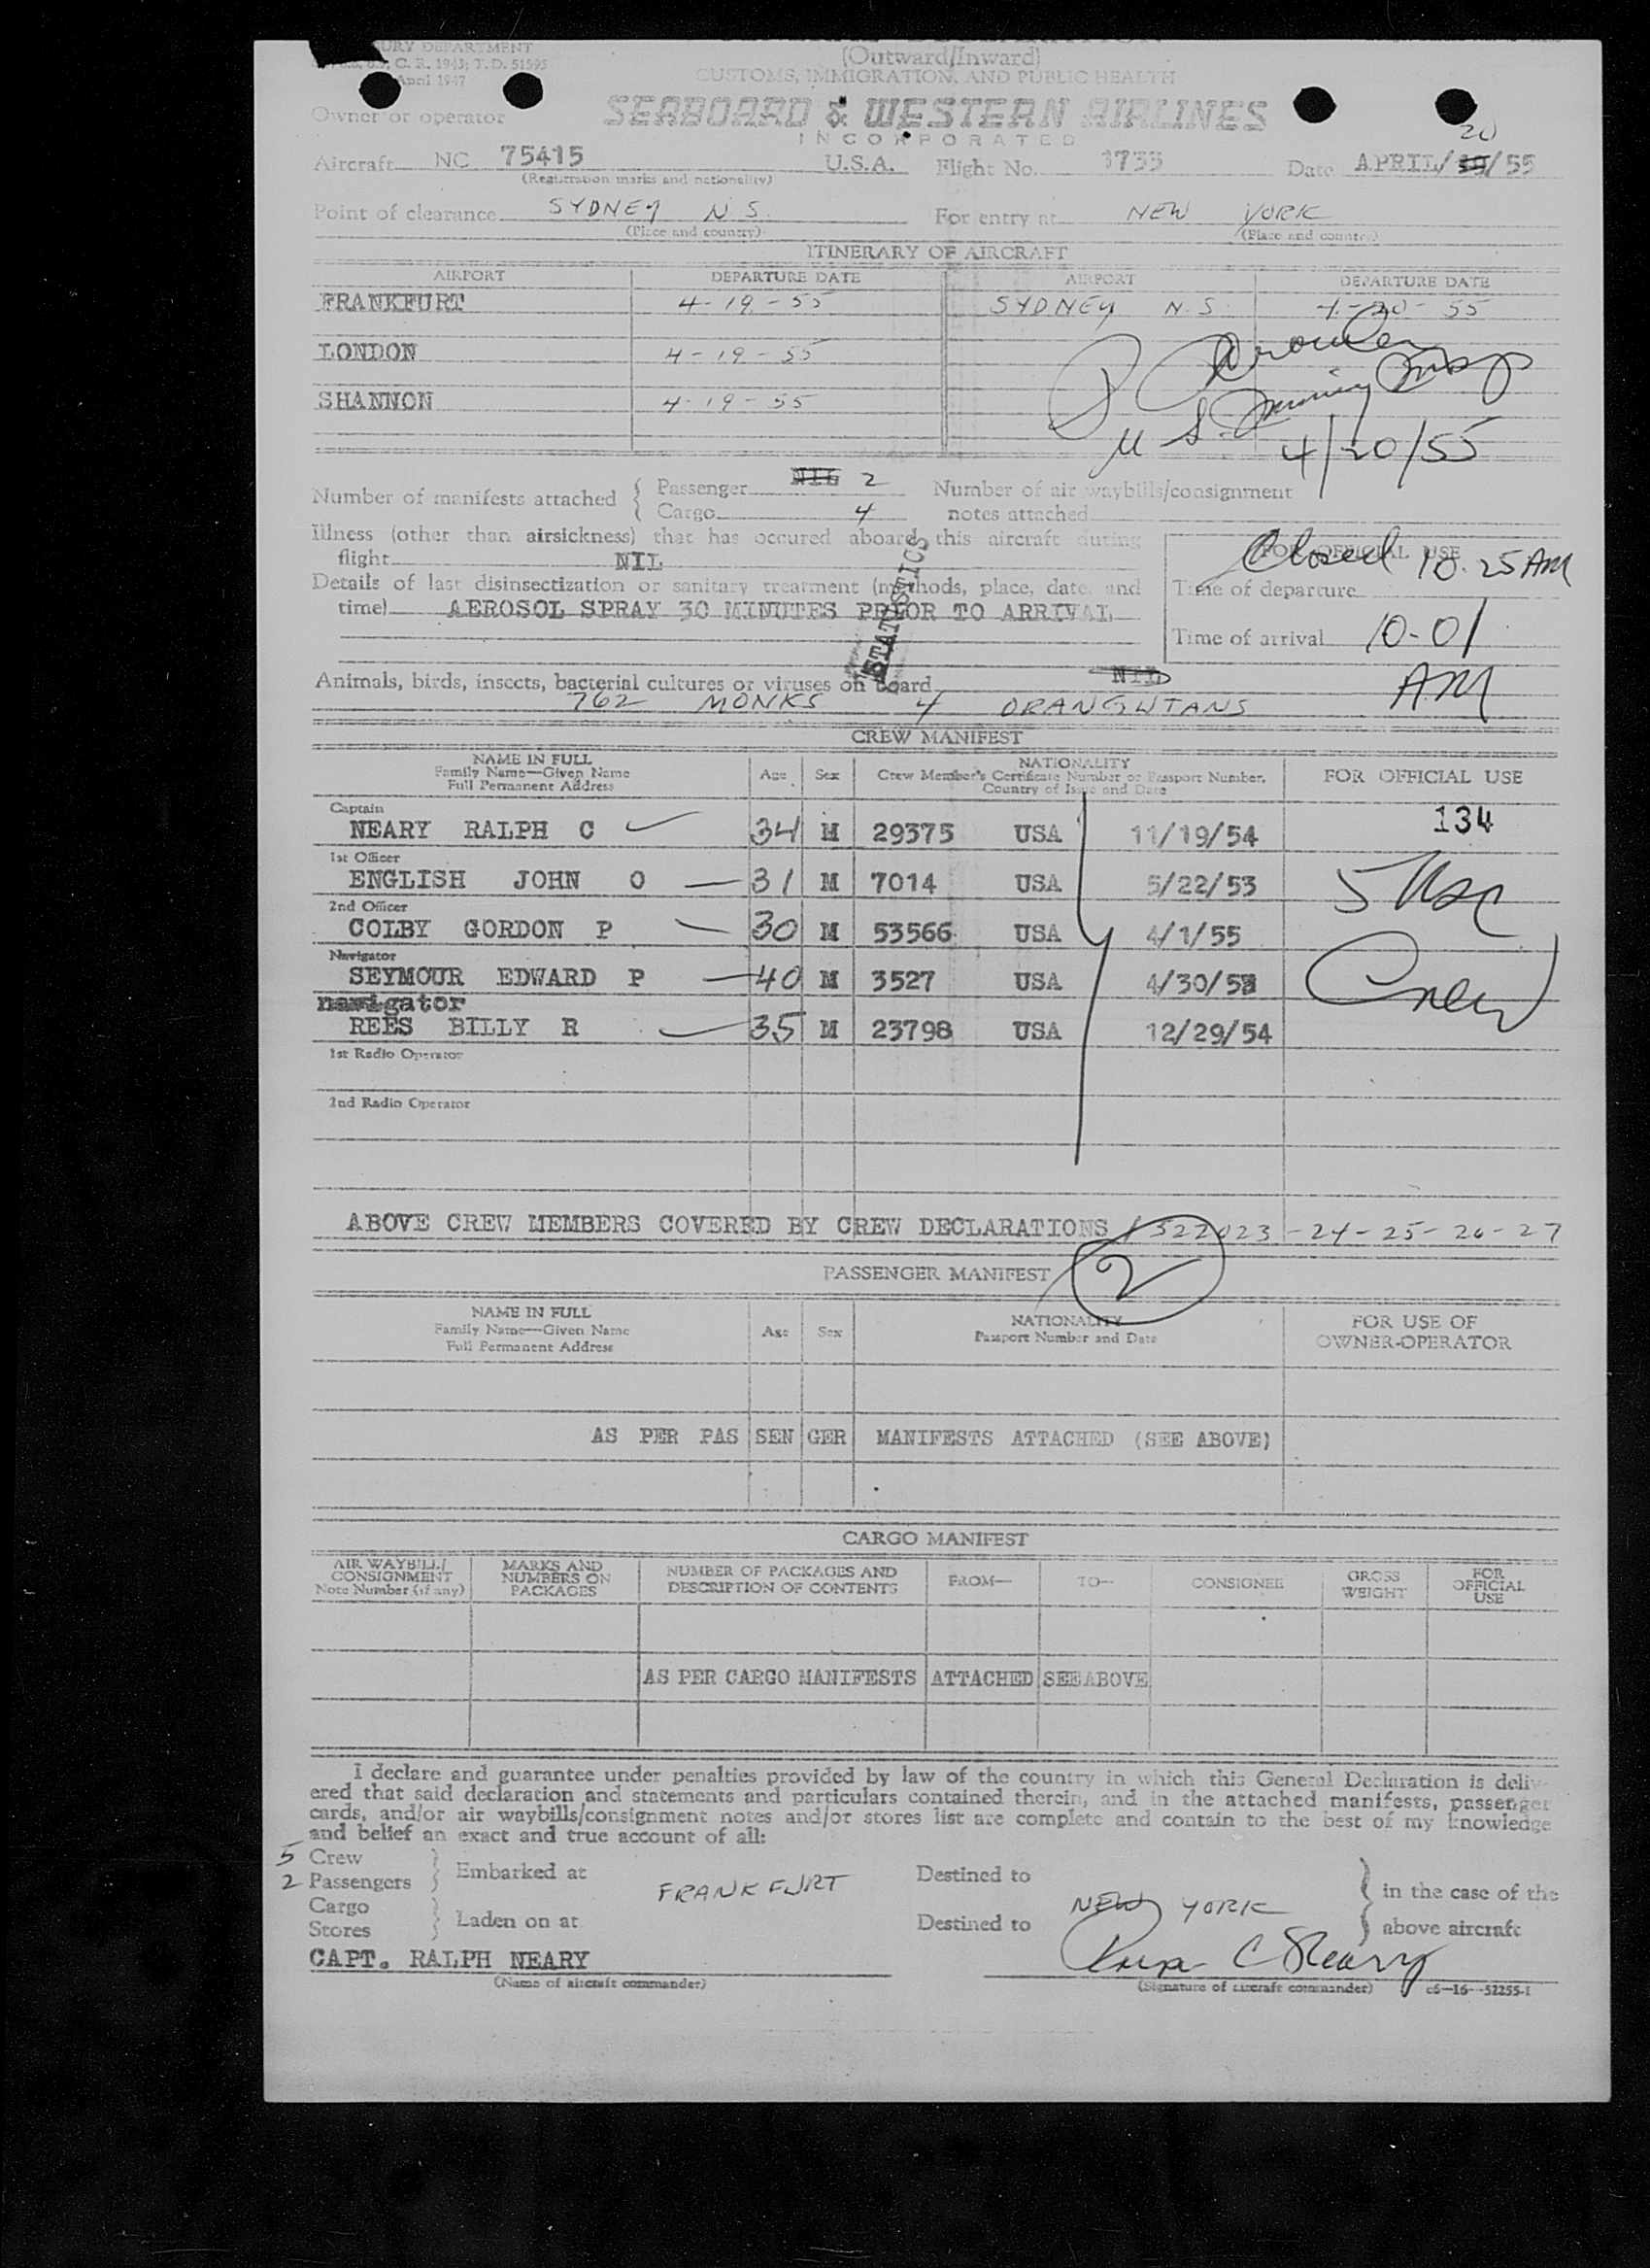 URY DEPARTMENT
C. R. 1943; T.D. 51595
April 1947
(Outward/Inward)
CUSTOMS, IMMIGRATION, AND PUBLIC HEALTH
Owner or operator SEABOARD & WESTERN AIRLINES
INCORPORATED
20
Aircraft NC 75415 U.S.A. Flight No. 1733 Date APRIL/ /55
(Registration marks and nationality)
Point of clearance SYDNEY N S. For entry at NEW YORK
(Place and country) (Place and country)
ITINERARY OF AIRCRAFT
AIRPORT DEPARTURE DATE AIRPORT DEPARTURE DATE
FRANKFURT 4-19-55 SYDNEY N.S. 4-20-55
LONDON 4-19-55
SHANNON 4-19-55
U S
4/20/55
Number of manifests attached { Passenger NIL 2 Number of air waybills/consignment
Cargo 4 notes attached
Illness (other than airsickness) that has occured aboard this aircraft during
flight NIL
FOR OFFICIAL USE
Closed 10.25 AM
Details of last disinsectization or sanitary treatment (methods, place, date, and
Time of departure
time) AEROSOL SPRAY 30 MINUTES PRIOR TO ARRIVAL
STATISTICS
Time of arrival 10-01
AM
Animals, birds, insects, bacterial cultures or viruses on board NIL
762 MONKS 4 ORANGUTANS
CREW MANIFEST
NAME IN FULL
Family Name—Given Name
Full Permanent Address
Age Sex
NATIONALITY
Crew Member's Certificate Number or Passport Number,
Country of Issue and Date
FOR OFFICIAL USE
Captain
NEARY RALPH C 34 M 29375 USA 11/19/54 134
1st Officer
ENGLISH JOHN O 31 M 7014 USA 5/22/53
5 USC
2nd Officer
COLBY GORDON P 30 M 53566 USA 4/1/55
Navigator
SEYMOUR EDWARD P 40 M 3527 USA 4/30/53
Crew
navigator
REES BILLY R 35 M 23798 USA 12/29/54
1st Radio Operator
2nd Radio Operator
ABOVE CREW MEMBERS COVERED BY CREW DECLARATIONS 1522023-24-25-26-27
PASSENGER MANIFEST 2
NAME IN FULL
Family Name—Given Name
Full Permanent Address
Age Sex
NATIONALITY
Passport Number and Date
FOR USE OF
OWNER-OPERATOR
AS PER PAS SEN GER MANIFESTS ATTACHED (SEE ABOVE)
CARGO MANIFEST
AIR WAYBILL/
CONSIGNMENT
Note Number (if any)
MARKS AND
NUMBERS ON
PACKAGES
NUMBER OF PACKAGES AND
DESCRIPTION OF CONTENTS
FROM— TO— CONSIGNEE
GROSS
WEIGHT
FOR
OFFICIAL
USE
AS PER CARGO MANIFESTS ATTACHED SEE ABOVE
I declare and guarantee under penalties provided by law of the country in which this General Declaration is deliv-
ered that said declaration and statements and particulars contained therein, and in the attached manifests, passenger
cards, and/or air waybills/consignment notes and/or stores list are complete and contain to the best of my knowledge
and belief an exact and true account of all:
5 Crew
2 Passengers } Embarked at FRANKFURT Destined to
Cargo
Stores } Laden on at Destined to NEW YORK
} in the case of the
above aircraft
CAPT. RALPH NEARY
(Name of aircraft commander) (Signature of aircraft commander) c6—16—52255-1